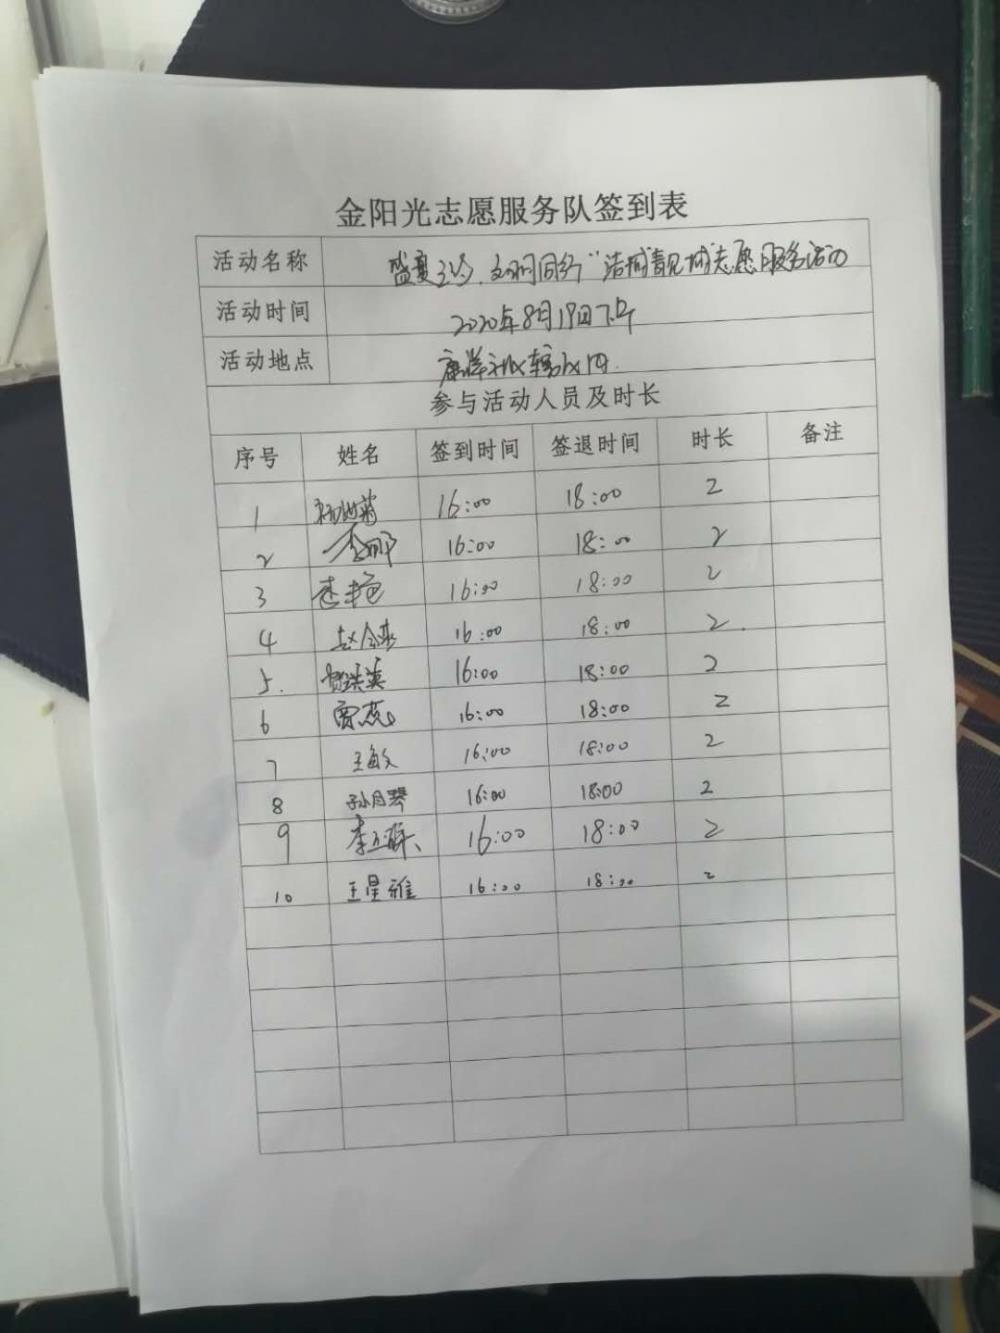 金阳光志愿服务队签到表
活动名称 盛夏 文明同行"洁城靓城"志愿服务活动
活动时间 2020年8月19日下午
活动地点 康洋社区辖区内.
参与活动人员及时长
序号 姓名 签到时间 签退时间 时长 备注
1 16:00 18:00 2
2 李娜 16:00 18:00 2
3 李艳 16:00 18:00 2
4 赵 16:00 18:00 2.
5. 16:00 18:00 2
6 贾蕊 16:00 18:00 2
7 王敏 16:00 18:00 2
8 孙月琴 16:00 18:00 2
9 李 16:00 18:00 2
10 王星雅 16:00 18:00 2